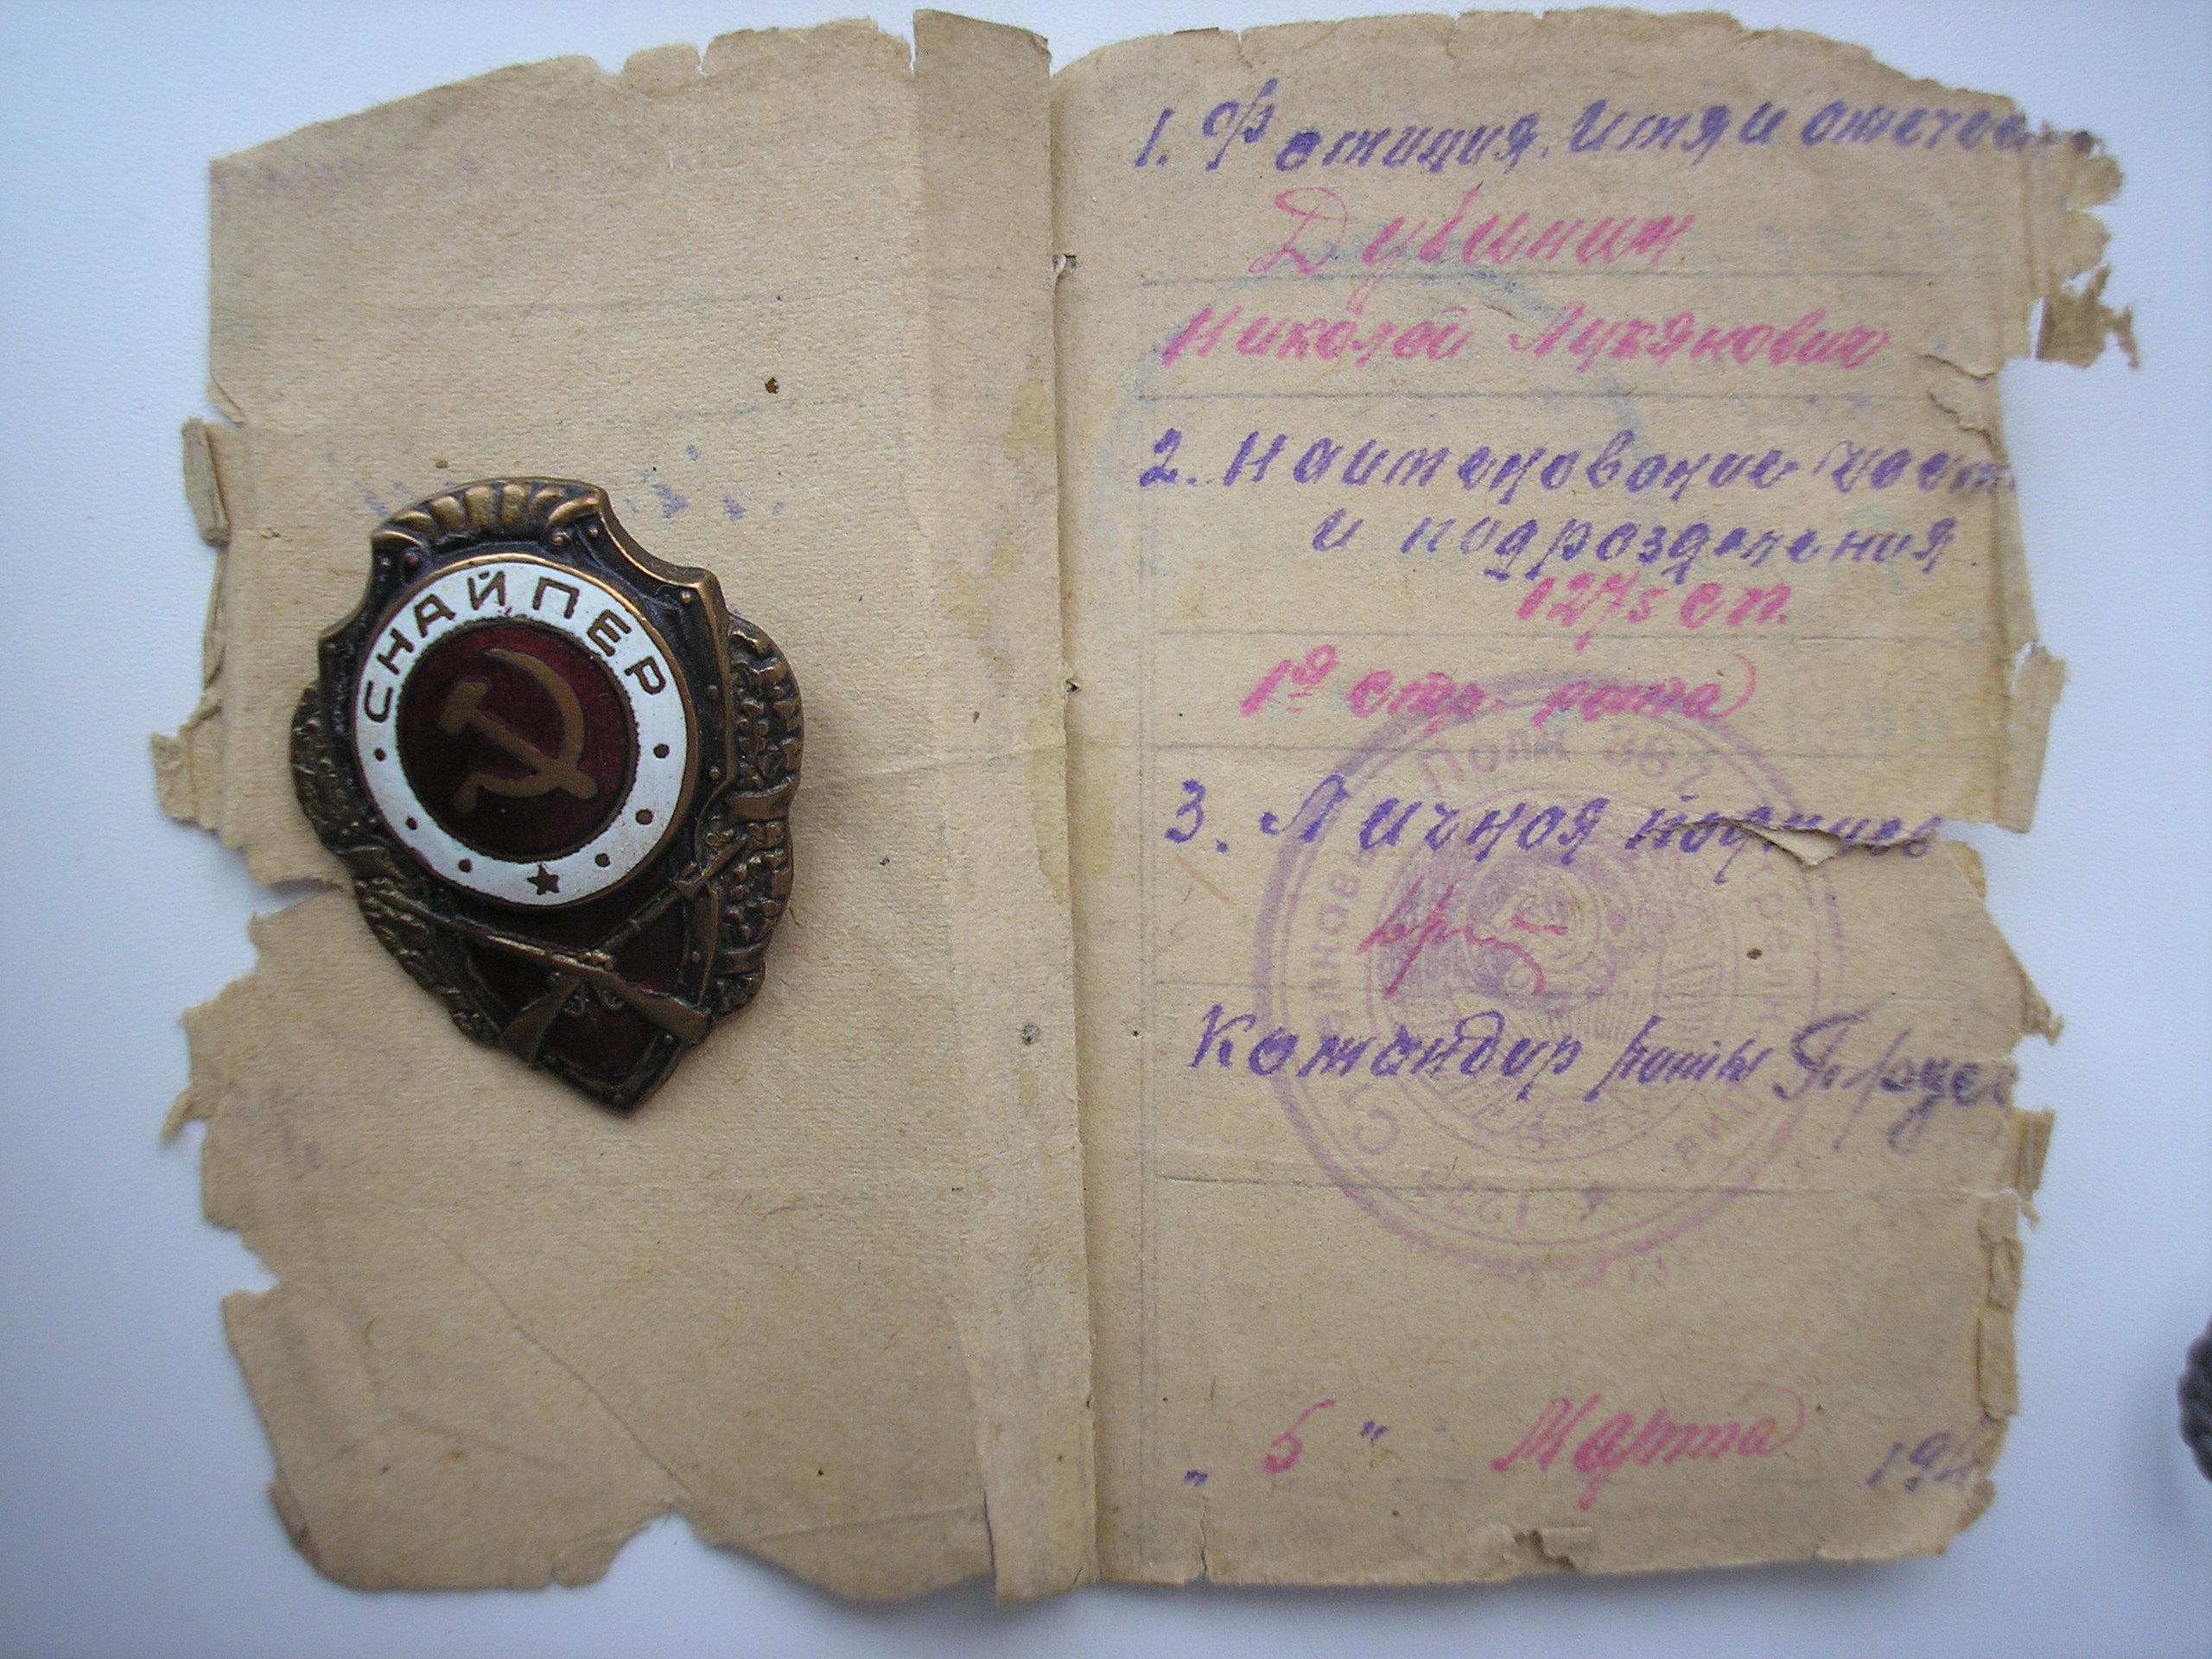 СНАЙПЕР
1. Фамилия, Имя и отечест
Дубинин
Николай Лукянович
2. Наименование част
и подразделения
1275 сп.
1я стр. рота
3. Личная подпись
Командир роты
Полк 387 Стрелк
1275
„ 5 " Марта 194